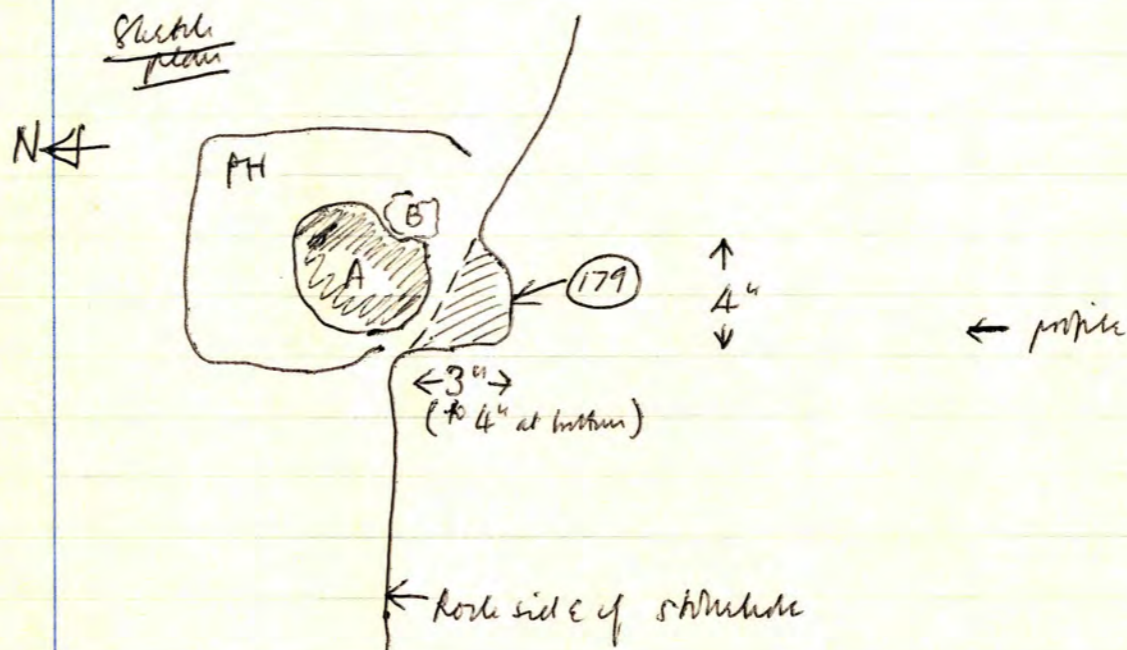 Sketch
plan
N
PH
B
A
179
4"
← profile
← 3" →
(to 4" at bottom)
← Rock side of stonehole